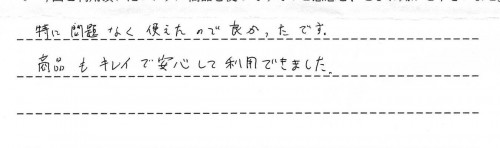 特に問題なく使えたので良かったです。
商品もキレイで安心して利用できました。